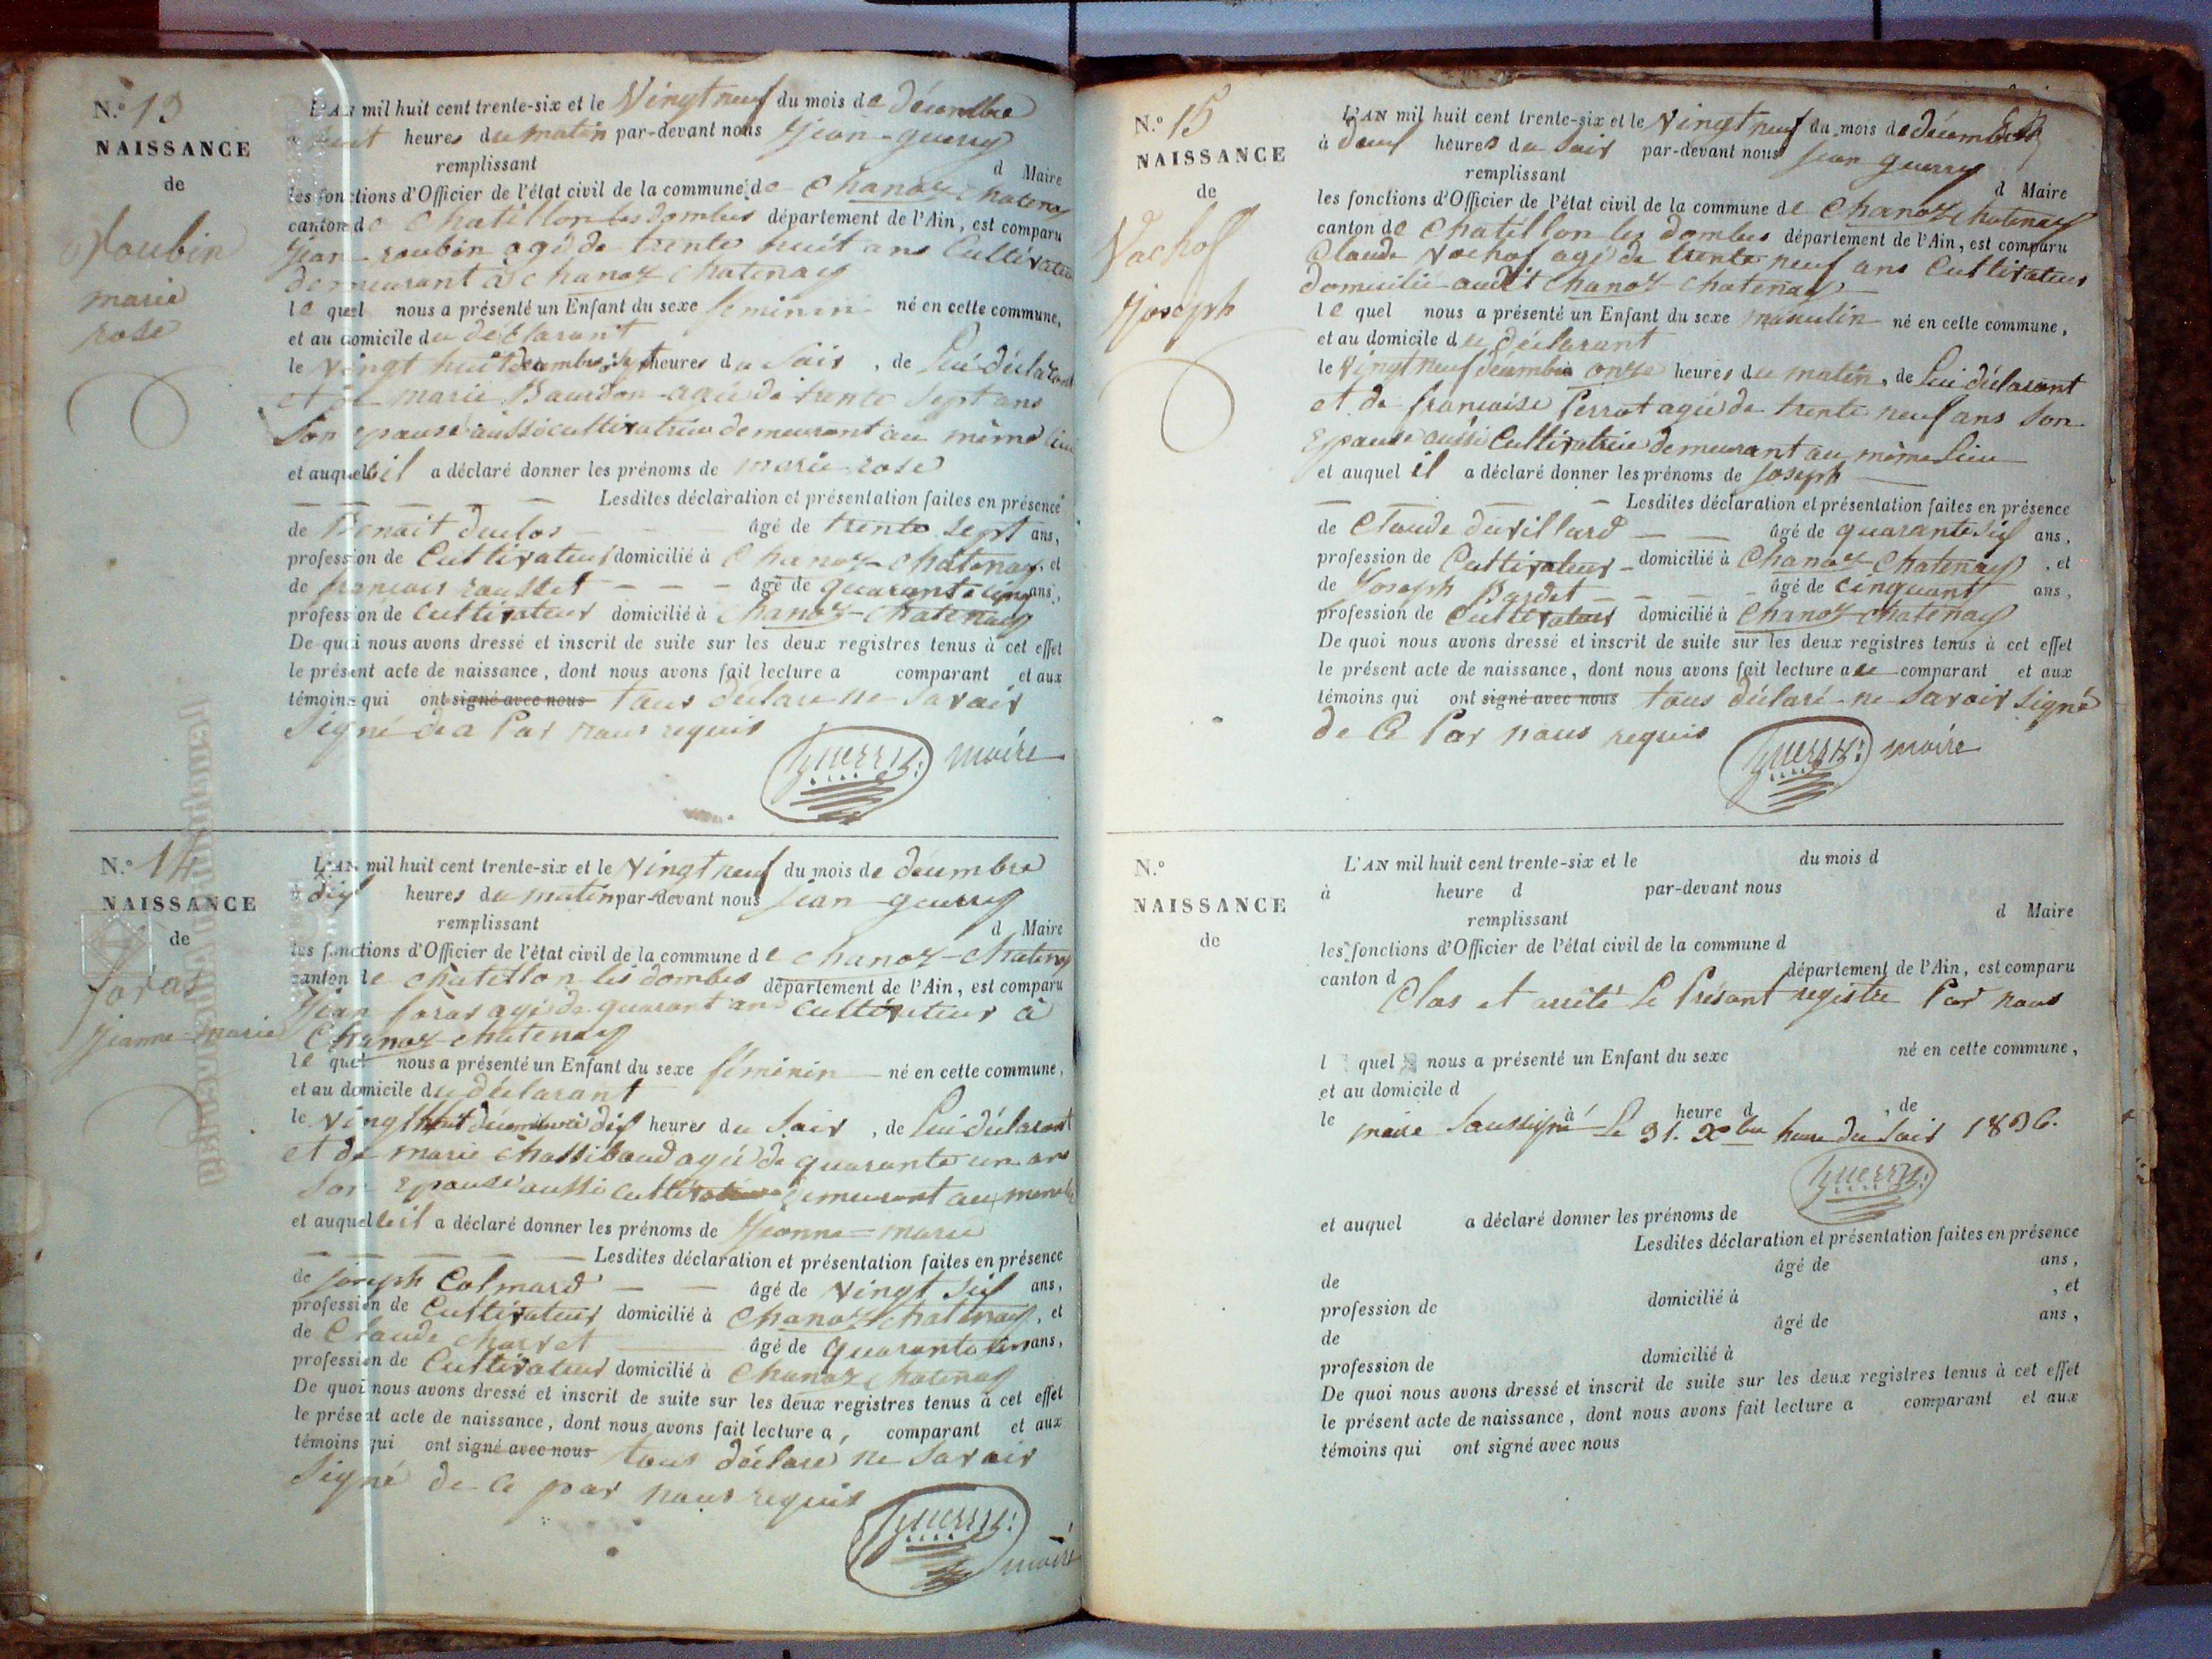 N.o 13
NAISSANCE
de
Roubin
marie
rose
L'AN mil huit cent trente-six et le Vingt neuf du mois de décembre
à huit heures du matin par-devant nous Jean guerry
remplissant d Maire
les fonctions d'Officier de l'état civil de la commune de Chanoz chatenay
canton de Chatillon les dombes département de l'Ain, est comparu
Jean roubin agé de trente huit ans Cultivateur
demeurant à chanoz chatenay
le quel nous a présenté un Enfant du sexe féminin né en cette commune,
et au domicile du déclarant
le vingt huit décembre sept heures du Soir, de Lui déclarant
et de marie Bourdon agée de trente Sept ans
Son epouse aussi cultivatrice demeurant au même lieu
et auquel il a déclaré donner les prénoms de marie rose
Lesdites déclaration et présentation faites en présence
de Benoit duclos âgé de trente Sept ans,
profession de Cultivateur domicilié à Chanoz-chatenay, et
de francois rousset âgé de quarante cinq ans,
profession de cultivateur domicilié à Chanoz-chatenay
De quoi nous avons dressé et inscrit de suite sur les deux registres tenus à cet effet
le présent acte de naissance, dont nous avons fait lecture a comparant et aux
témoins qui ont signé avec nous tous déclaré ne Savoir
Signé de ce Par nous requis
guerry maire
N.o 14
NAISSANCE
de
foras
Jeanne=marie
L'AN mil huit cent trente-six et le Vingt neuf du mois de décembre
à dix heures du matin par-devant nous jean guerry
remplissant d Maire
les fonctions d'Officier de l'état civil de la commune de chanoz-chatenay
canton de chatillon les dombes département de l'Ain, est comparu
Jean foras agé de quarant ans cultivateur à
Chanoz-chatenay
le quel nous a présenté un Enfant du sexe féminin né en cette commune,
et au domicile du déclarant
le Vingt huit décembre dix heures du Soir, de Lui déclarant
et de marie chassibaud agée de quarante un ans
Son Epouse aussi cultivatrice demeurant au
et auquel il a déclaré donner les prénoms de Jeanne=marie
Lesdites déclaration et présentation faites en présence
de joseph Colmard âgé de Vingt Six ans,
profession de Cultivateur domicilié à Chanoz chatenay, et
de Claude charvet âgé de Quarante ans,
profession de Cultivateur domicilié à Chanoz chatenay
De quoi nous avons dressé et inscrit de suite sur les deux registres tenus à cet effet
le présent acte de naissance, dont nous avons fait lecture a, comparant et aux
témoins qui ont signé avec nous tous déclaré ne Savoir
Signé de ce par nous requis
guerry
maire
N.o 15
NAISSANCE
de
Vachof
Joseph
L'AN mil huit cent trente-six et le Vingt neuf du mois de décembre
à deux heures du Soir par-devant nous jean guerry
remplissant d Maire
les fonctions d'Officier de l'état civil de la commune de Chanoz chatenay
canton de Chatillon les dombes département de l'Ain, est comparu
Claude Vachof agé de trente neuf ans Cultivateur
domicilié audit chanoz-chatenay
le quel nous a présenté un Enfant du sexe masculin né en cette commune,
et au domicile du déclarant
le Vingt neuf décembre onze heures du matin, de Lui déclarant
et de francoise Perrot agée de trente neuf ans Son
Epouse aussi Cultivatrice demeurant au même Lieu
et auquel il a déclaré donner les prénoms de joseph
Lesdites déclaration et présentation faites en présence
de Claude duvillard âgé de quarante Six ans,
profession de Cultivateur domicilié à Chanoz-Chatenay, et
de Joseph Bardet âgé de cinquant ans,
profession de Cultivateur domicilié à Chanoz-chatenay
De quoi nous avons dressé et inscrit de suite sur les deux registres tenus à cet effet
le présent acte de naissance, dont nous avons fait lecture a le comparant et aux
témoins qui ont signé avec nous tous déclaré ne Savoir Signé
de Ce Par nous requis
guerry maire
N.o
NAISSANCE
de
L'AN mil huit cent trente-six et le du mois d
à heure d par-devant nous
remplissant d Maire
les fonctions d'Officier de l'état civil de la commune d
canton d département de l'Ain, est comparu
Clos et arrêté Le Présent registre Par nous
l quel nous a présenté un Enfant du sexe né en cette commune,
et au domicile d
le à heure d , de
maire Soussigné Le 31. Xbre heure du Soir 1836.
guerry
et auquel a déclaré donner les prénoms de
Lesdites déclaration et présentation faites en présence
de âgé de ans,
profession de domicilié à , et
de âgé de ans,
profession de domicilié à
De quoi nous avons dressé et inscrit de suite sur les deux registres tenus à cet effet
le présent acte de naissance, dont nous avons fait lecture a comparant et aux
témoins qui ont signé avec nous